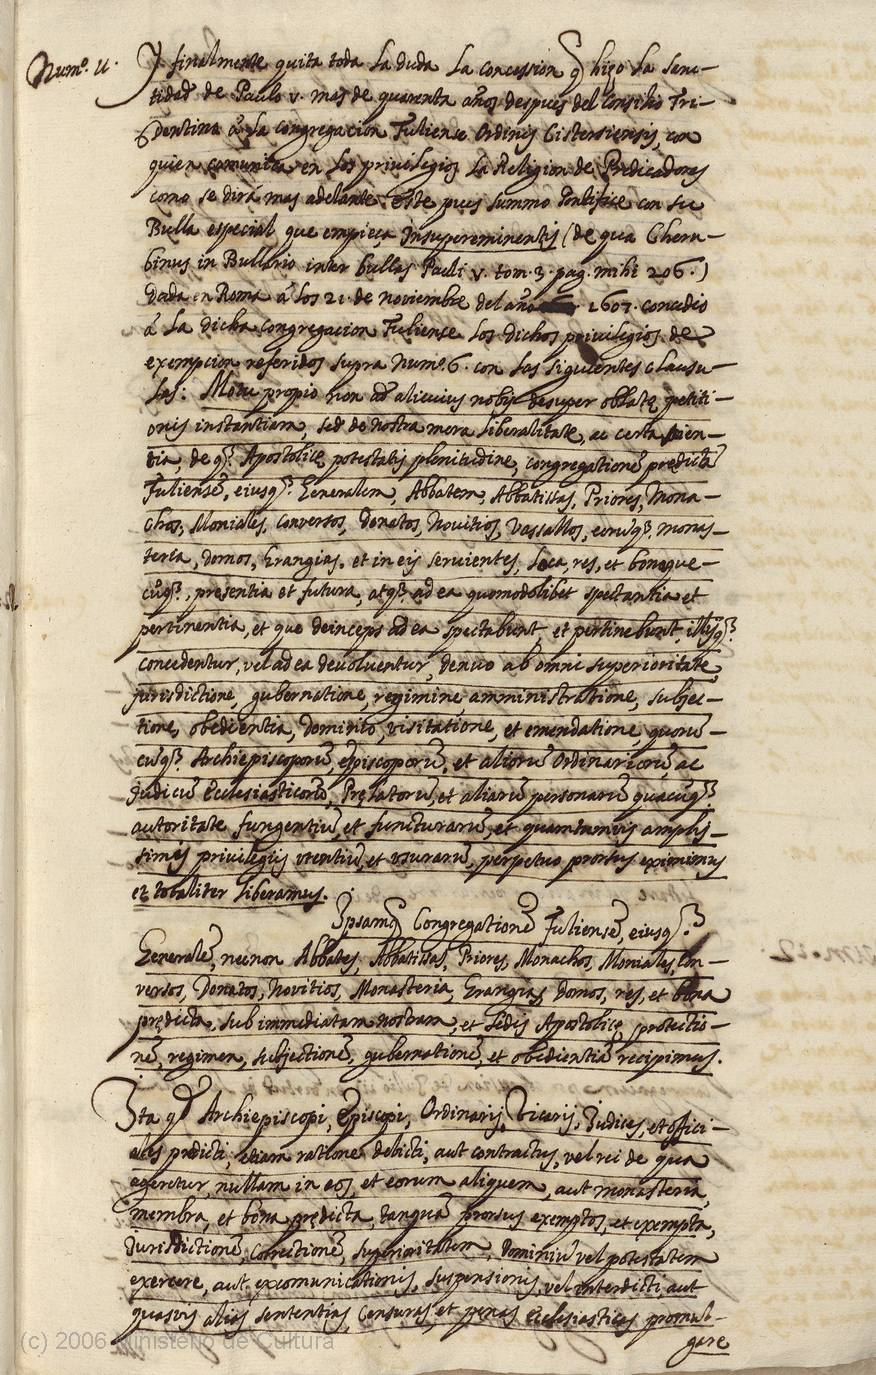 Num.º 11.
Y finalmente quita toda la duda la concession q̃ hizo la sanc-
tidad de Paulo v. mas de quarenta años despues del consilio Tri-
dentino a la congregacion Fuliense Ordinis Cisterciensis, con
quien comunica en los privilegios la Religion de Predicadores
como se dirá mas adelante. Este pues summo Pontifice con su
Bulla especial que empieça Insupereminentis (de qua Cheru-
binus in Bullario inter bullas Pauli v. tom. 3. pag. mihi 206.)
dada en Roma a los 21. de noviembre del año 1607. concedio
a la dicha congregacion Fuliense los dichos privilegios de
exempcion referidos supra Num.º 6. con las siguientes clausu-
las: Motu propio non ad alicuius nobis desuper oblatę petiti-
onis instantiam, sed de nostra mera liberalitate, ac certa scien-
tia, deq̃. Apostolicę potestatis plenitudine, congregationē predictā
Fuliensē, eiusq̃. Generalem, Abbatem, Abbatissas, Priores, Mona-
chos, Moniales, conversos, donatos, Novitios, vassallos, eorūq̃. monas-
teria, domos, Grangias, et in eis servientes, loca, res, et bona que-
cūq̃., presentia et futura, atq̃. ad ea quomodolibet spectantia et
pertinentia, et que deinceps ad ea spectabunt, et pertinebunt, illisq̃.
concedentur, vel ad ea devolventur, denuo ab omni superioritate
jurisdictione, gubernatione, regimine, amministratione, subjec-
tione, obedientia, dominio, visitatione, et emendatione, quorū-
cūq̃. Archiepiscoporū, episcoporū, et aliorū Ordinariorū, ac
Judicū Ecclesiasticorū, Pręlatorū, et aliarū personarū quacūq̃.
autoritate fungentiū, et functurarū, et quantumvis amplis-
simis privilegiis utentiū, et usurarū, perpetuo prorsus eximimus
et totaliter liberamus.
Ipsamq̃ Congregationē Fuliensē, eiusq̃.
Generalē, necnon Abbates, Abbatissas, Priores, Monachos, Moniales, Con-
versos, Donatos, Novitios, Monasteria, Grangias, domos, res, et bona
prędicta, sub immediatam nostram, et Sedis Apostolicę protectio-
nē, regimen, subjectionē, gubernationē, et obedientiā recipimus.
Ita qd̃ Archiepiscopi, Episcopi, Ordinarij, Vicarij, Judices, et offici-
ales predicti, etiam ratione delicti, aut contractus, vel rei de qua
ageretur, nullam in eos, et eorum aliquem, aut monasteria,
membra, et bona prędicta, tanquā prorsus exemptos, et exempta,
Jurisdictionē, Correctionē, superioritatem, dominiū vel potestatem
exercere, aut excomunicationis, suspensionis, vel interdicti aut
quasvis alias sententias, Censuras, et penas Ecclesiasticas promul-
gare
(c) 2006 Ministerio de Cultura